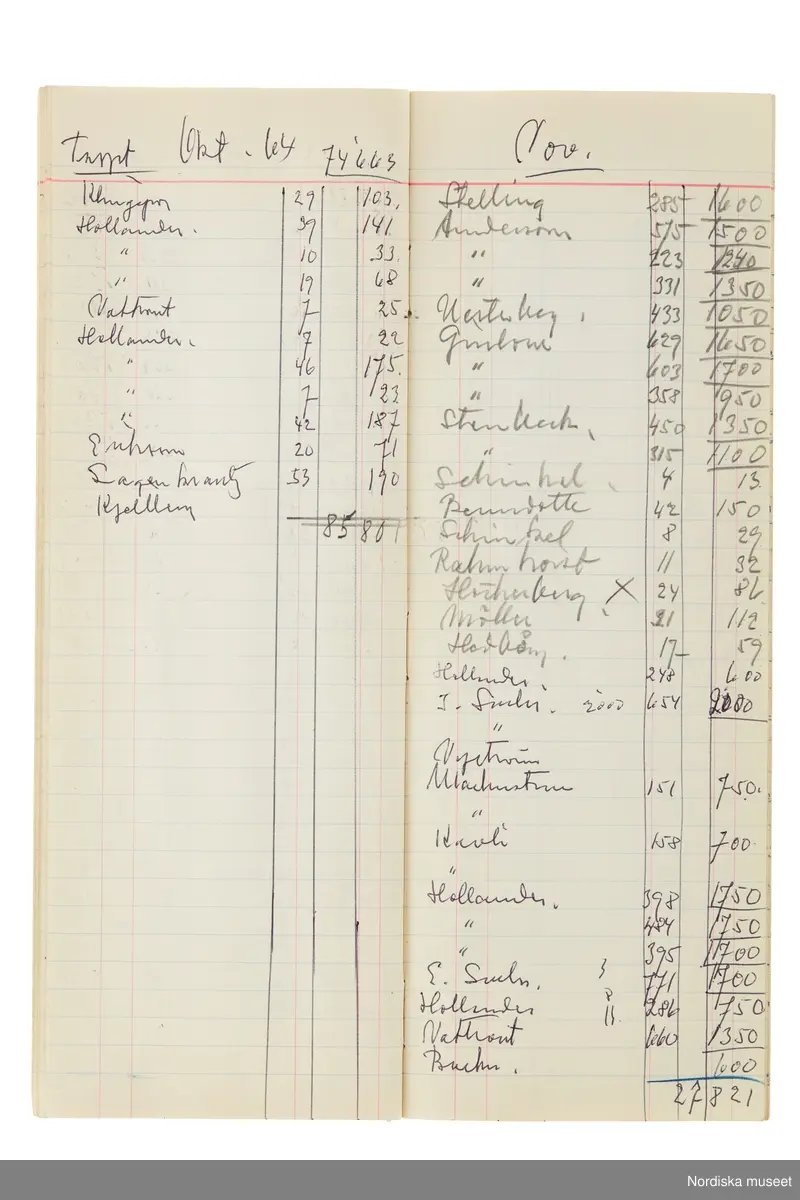 Trspt Okt. 64 74'663
Klingspor 29 103.
Hollander. 39 141.
" 10 33.
" 19 68
Vattrant 7 25
Hollander. 7 22
" 46 175.
" 7 23
" 42 187
Erikson 20 71
Lagercrantz 53 190
Kjellberg
85 801
Nov.
Skelling 285 1600
Anderson 515 1500
" 223 1240
" 331 1350
Westerberg 433 1050
629 1650
" 603 1700
" 358 950
Stenbeck 450 1350
" 315 1100
Schinkel 4 13
Bernadotte 42 150
Schinkel 8 29
11 32
X 24 86
Möller 31 112
Hedberg. 17 59
Hollander 248 600
J. Sachs. 2000 654 2000
"
Nyström
151 750.
"
Kavli 158 700
"
Hollander. 398 1750
" 484 1750
" 395 1700
E. Sachs. 3 771 1700
Hollander 8 11. 286 750
Vattrant 660 1350
600
27 821
Nordiska museet